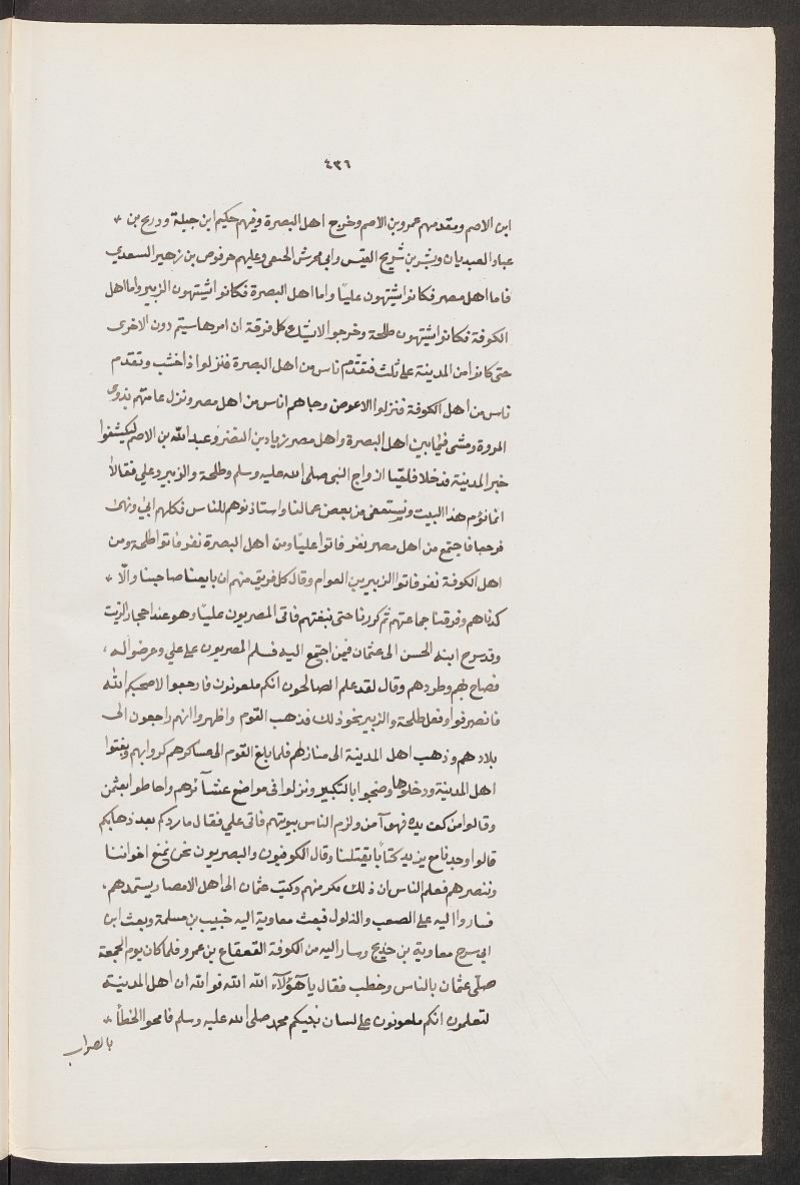 ٤٣٦
ابن الاصم ومقدمهم عمرو بن الاصم وخرج اهل البصرة وفيهم حكيم ابن جبلة ودريح بن *
عباد العبديان وبشر بن شريح القيس وابي محرش الحنفى وعليهم حرقوص بن زهير السعدي
فاما اهل مصر فكانوا يشتهون عليًا واما اهل البصرة فكانوا يشتهون الزبير واما اهل
الكوفة فكانوا يشتهون طلحة وخرجوا لا تشك كل فرقة ان امرها سيتم دون الاخرى
حتى كانوا من المدينة على ثلث فتقدم ناس من اهل البصرة فنزلوا ذا خشب وتقدم
ناس من اهل الكوفة فنزلوا الاعوص وجاهم اناس من اهل مصر ونزل عامتهم بذى
المروة ومشى فيما بين اهل البصرة واهل مصر زياد بن النضر وعبد الله بن الاصم ليكشفوا
خبر المدينة فدخلا فلقيا ازواج النبى صلى الله عليه وسلم وطلحة والزبير وعلي فقالا
انما نؤم هذا البيت ونستعفى من بعض عمالنا واستاذنوهم للناس فكلهم ابىٰ ونهىٰ
فرجعا فاجتمع من اهل مصر نفر فاتوا عليًا ومن اهل البصرة نفر فاتوا طلحة ومن
اهل الكوفة نفر فاتوا الزبير بن العوام وقال كل فريق منهم ان بايعنا صاحبنا والّا *
كدناهم وفرقنا جماعتهم ثم كررنا حتى نبغتهم فاتى المصريون عليًا وهو عند احجار الزيت
وقد سرح ابنه الحسن الى عثمان فيمن اجتمع اليه فسلم المصريون على علي وعرضوا له ،
فصاح بهم وطردهم وقال لقد علم الصالحون انكم ملعونون فارجعوا لا صحبكم الله
فانصرفوا وفعل طلحة والزبير نحو ذلك فذهب القوم واظهروا انهم راجعون الى
بلادهم وذهب اهل المدينة الى منازلهم فلما بلغ القوم الى عساكرهم كروا بهم وبغتوا
اهل المدينة ودخلوها وضجوا بالتكبير ونزلوا فى مواضع عشآئرهم واحاطوا بعثمن
وقالوا من كف يده فهو آمن ولزم الناس بيوتهم فاتى علي فقال ما ردكم بعد ذهابكم
قالوا وجدنا مع يزيد كتابًا بقتلنا وقال الكوفيون والبصريون نحن نمنع اخواننا
وننصرهم فعلم الناس ان ذلك مكر منهم وكتب عثمان الى اهل الامصار يستمدهم ،
فساروا اليه على الصعب والذلول فبعث معاوية اليه خبيب بن مسلمة وبعث ابن
ابي سرح معاوية بن خديج وسار اليه من الكوفة القعقاع بن عمرو فلما كان يوم الجمعة
صلّى عثمان بالناس وخطب فقال يا هؤلآء الله الله فوالله ان اهل المدينة
لتعلمون انكم ملعونون على لسان نبيكم محمد صلى الله عليه وسلم فامحوا الخطأ *
بالصواب